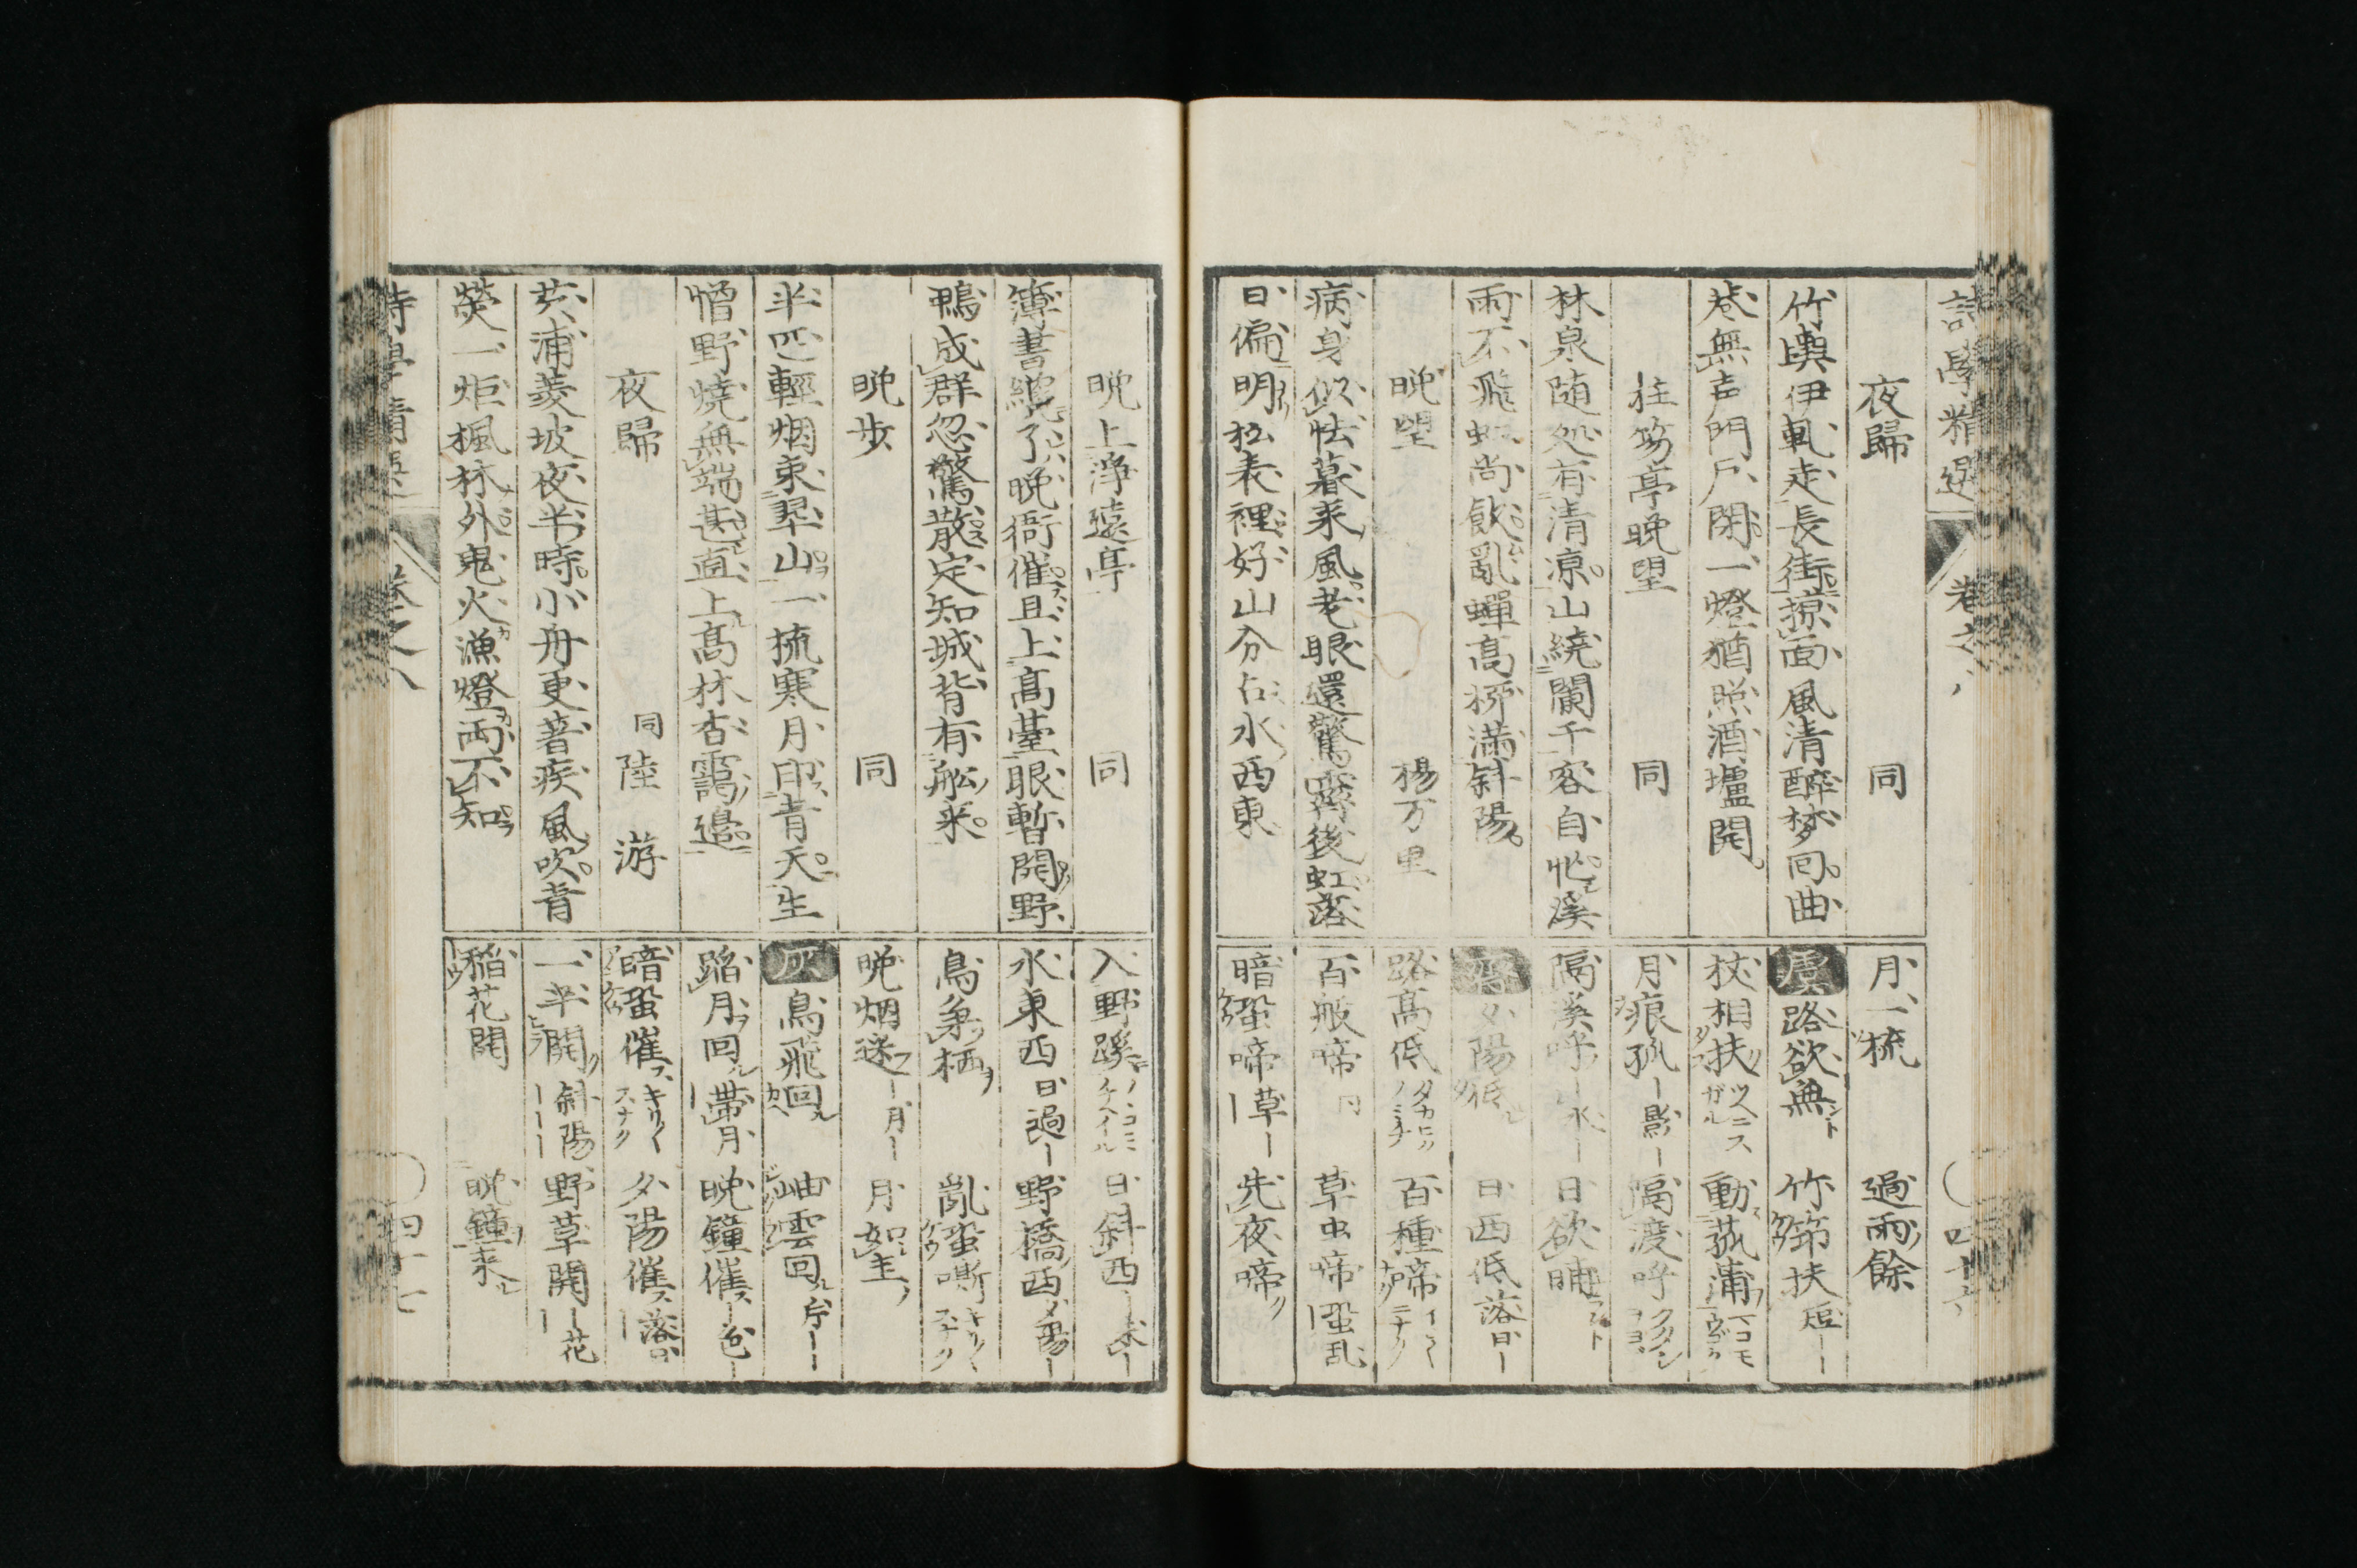 詩學精選 卷之八
夜歸 同
竹輿伊軋走長街掠面風清醉梦回曲
巷無声門戸閉一燈猶照酒壚開
拄笏亭晩望 同
林泉随処有清凉山繞闌干客自忙溪
雨不飛虹尚飲亂蟬高柳満斜陽
晩望 楊万里
病身似怯暮来風老眼還驚霽後虹落
日偏明松表裡好山分占水西東
月一梳 過雨餘
虞 路欲無 竹筇扶 短一一
杖相扶 ツヘニスガル 動菰蒲 マコモウゴク
月痕孤 一影一 隔渡呼
隔溪呼 一水一 日欲晡
齊 夕陽低 日西低 落日一
路高低 百種啼
百般啼 草虫啼 蛩乱
暗蛩啼 草一 先夜啼
晩上浄遠亭 同
簿書纔了晩衙催且上高臺眼暫開野
鴨成群忽驚散定知城背有舩来
晩歩 同
半匹輕烟束翠山一梳寒月印青天生
憎野燒無端甚直上高林杏靄邉
夜歸 同 陸游
芡浦菱坡夜半時小舟更著疾風吹青
熒一炬楓林外鬼火漁燈両不知
入野蹊 日斜西
水東西 日過一 野橋西 夕陽一
鳥巣栖 亂蛩嘶
晩烟迷 一月一 月如圭
灰 鳥飛回 岫雲回
蹈月回 帯月 晩鐘催 一色一
暗蛩催 夕陽催 落日
一半開 斜陽一一一 野草開 一花
稲花開 晩鐘来
詩學精選 卷之八 四十七